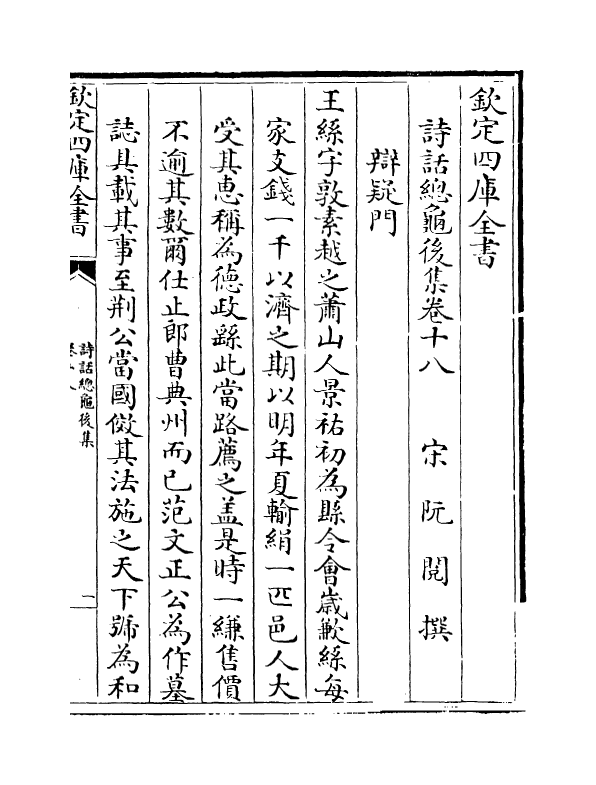 欽定四庫全書
詩話總龜後集卷十八　宋　阮　閱　撰
辯疑門
王絲字敦素越之蕭山人景祐初為縣令會歲歉絲每
家支錢一千以濟之期以明年夏輸絹一匹邑人大
受其惠稱為德政繇此當路薦之盖是時一縑售價
不逾其數爾仕止郎曹典州而已范文正公為作墓
誌具載其事至荆公當國倣其法施之天下號為和
欽定四庫全書
詩話總龜後集
卷十八
一